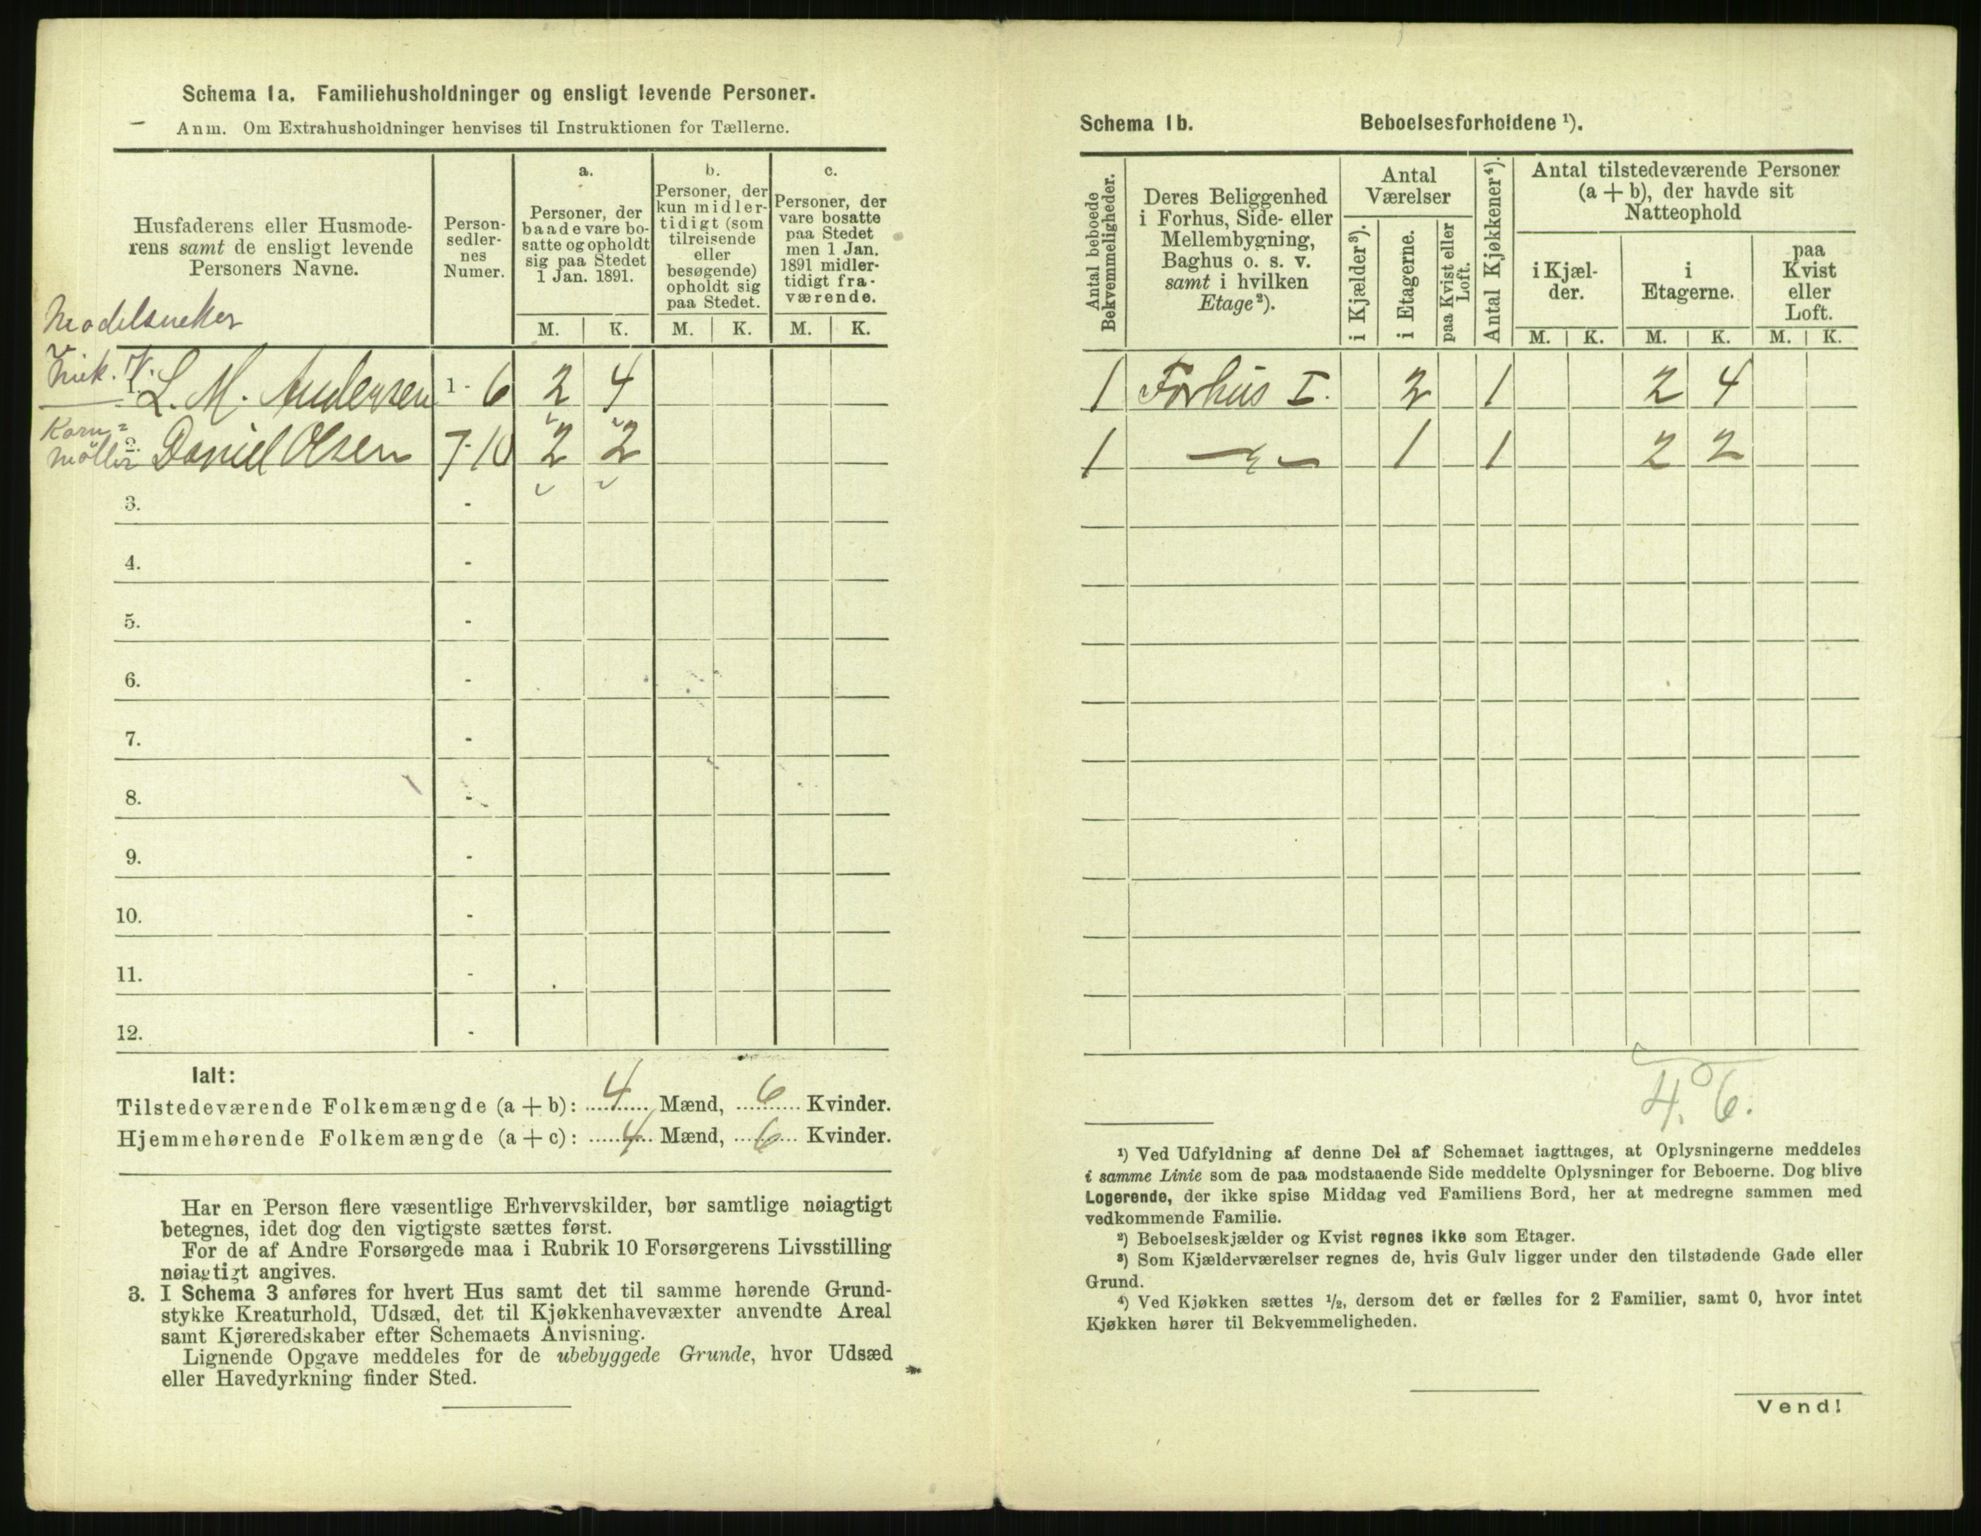 Schema 1a. Familiehusholdninger og ensligt levende Personer.
Anm. Om Extrahusholdninger henvises til Instruktionen for Tællerne.
Husfaderens eller Husmode-
rens samt de ensligt levende
Personers Navne.
Person-
sedler-
nes
Numer.
a.
Personer, der
baade vare bo-
satte og opholdt
sig paa Stedet
1 Jan. 1891.
b.
Personer, der
kun midler-
tidigt (som
tilreisende
eller
besøgende)
opholdt sig
paa Stedet.
c.
Personer, der
vare bosatte
paa Stedet
men 1 Jan.
1891 midler-
tidigt fra-
værende.
M. K. M. K. M. K.
Modelsneker
1. L. M. Andersen 1 - 6 2 4
Korn-
Møller 2. Daniel Olsen 7-10 2 2
3. -
4. -
5. -
6. -
7. -
8. -
9. -
10. -
11. -
12. -
Ialt:
Tilstedeværende Folkemængde (a + b): 4 Mænd, 6 Kvinder.
Hjemmehørende Folkemængde (a + c): 4 Mænd, 6 Kvinder.
Har en Person flere væsentlige Erhvervskilder, bør samtlige nøiagtigt
betegnes, idet dog den vigtigste sættes først.
For de af Andre Forsørgede maa i Rubrik 10 Forsørgerens Livsstilling
nøiagtigt angives.
3. I Schema 3 anføres for hvert Hus samt det til samme hørende Grund-
stykke Kreaturhold, Udsæd, det til Kjøkkenhavevæxter anvendte Areal
samt Kjøreredskaber efter Schemaets Anvisning.
Lignende Opgave meddeles for de ubebyggede Grunde, hvor Udsæd
eller Havedyrkning finder Sted.
Schema 1b. Beboelsesforholdene ¹).
Antal beboede
Bekvemmeligheder.
Deres Beliggenhed
i Forhus, Side- eller
Mellembygning,
Baghus o. s. v.
samt i hvilken
Etage²).
Antal
Værelser
i Kjælder³).
i Etagerne.
paa Kvist eller
Loft.
Antal Kjøkkener⁴).
Antal tilstedeværende Personer
(a + b), der havde sit
Natteophold
i Kjæl-
der.
i
Etagerne.
paa
Kvist
eller
Loft.
M. K. M. K. M. K.
1 Forhus I. 2 1 2 4
1 1 1 2 2
4. 6.
¹) Ved Udfyldning af denne Del af Schemaet iagttages, at Oplysningerne meddeles
i samme Linie som de paa modstaaende Side meddelte Oplysninger for Beboerne. Dog blive
Logerende, der ikke spise Middag ved Familiens Bord, her at medregne sammen med
vedkommende Familie.
²) Beboelseskjælder og Kvist regnes ikke som Etager.
³) Som Kjælderværelser regnes de, hvis Gulv ligger under den tilstødende Gade eller
Grund.
⁴) Ved Kjøkken sættes ½, dersom det er fælles for 2 Familier, samt 0, hvor intet
Kjøkken hører til Bekvemmeligheden.
Vend!